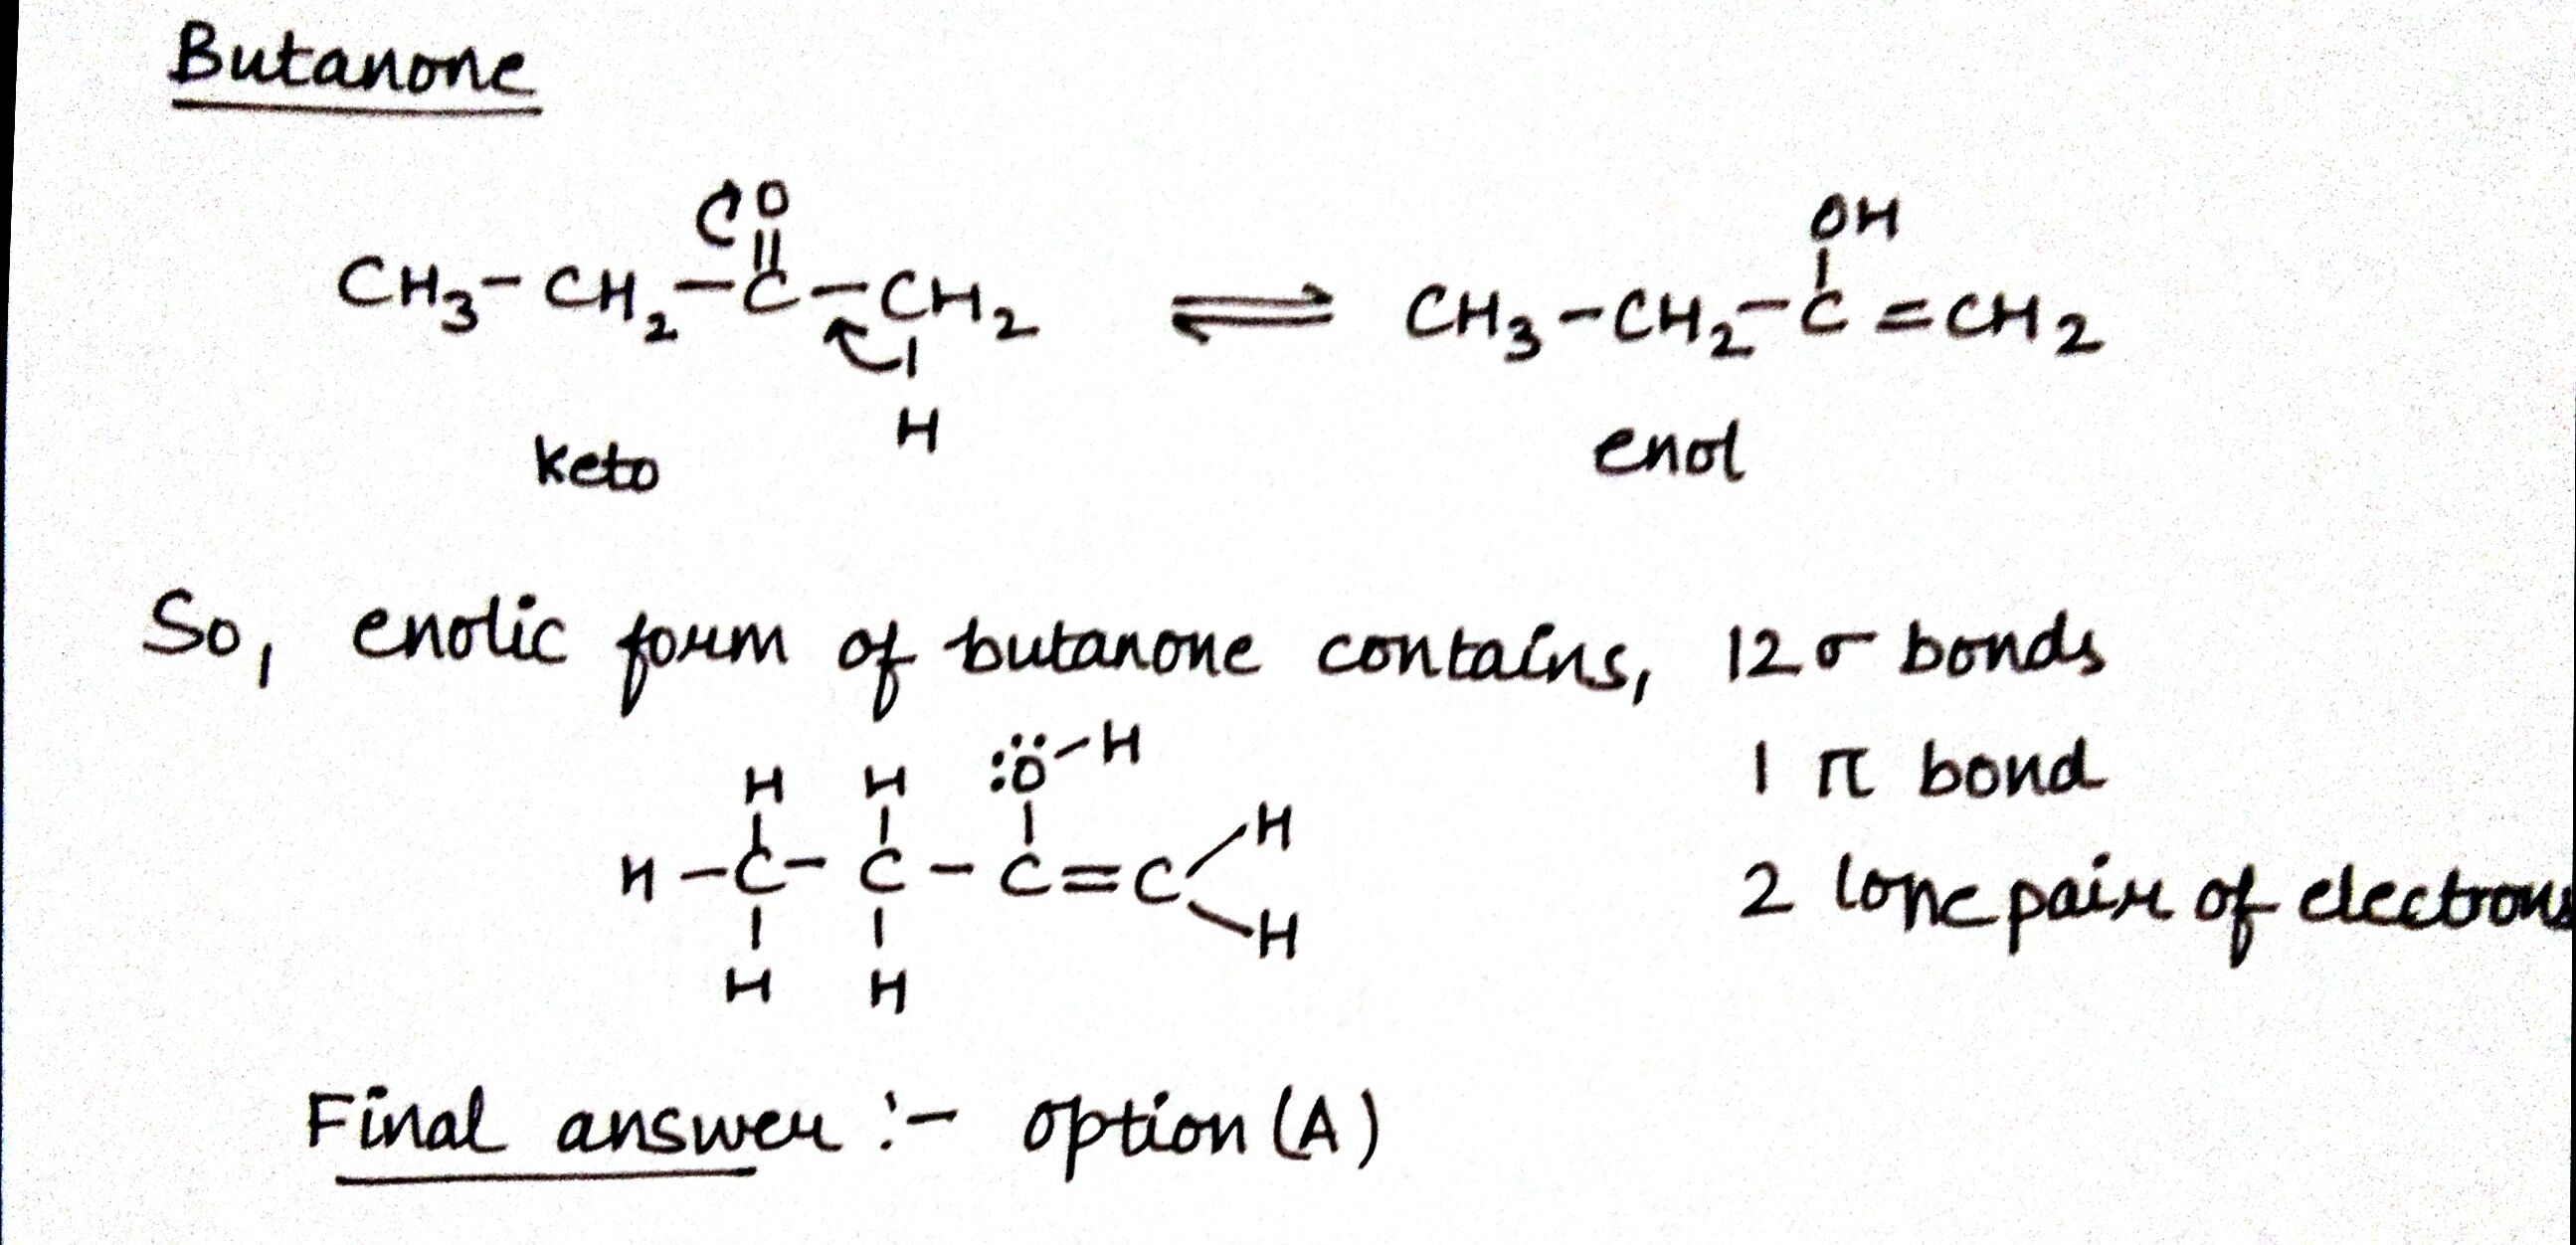 Butanone
O
CH3-CH2-C-CH2 ⇌ CH3-CH2-C=CH2
OH
H
keto enol
So, enolic form of butanone contains, 12 σ bonds
1 π bond
2 lone pair of electrons
H H :Ö-H
H-C-C-C=C H
H
H H
Final answer :- option (A)